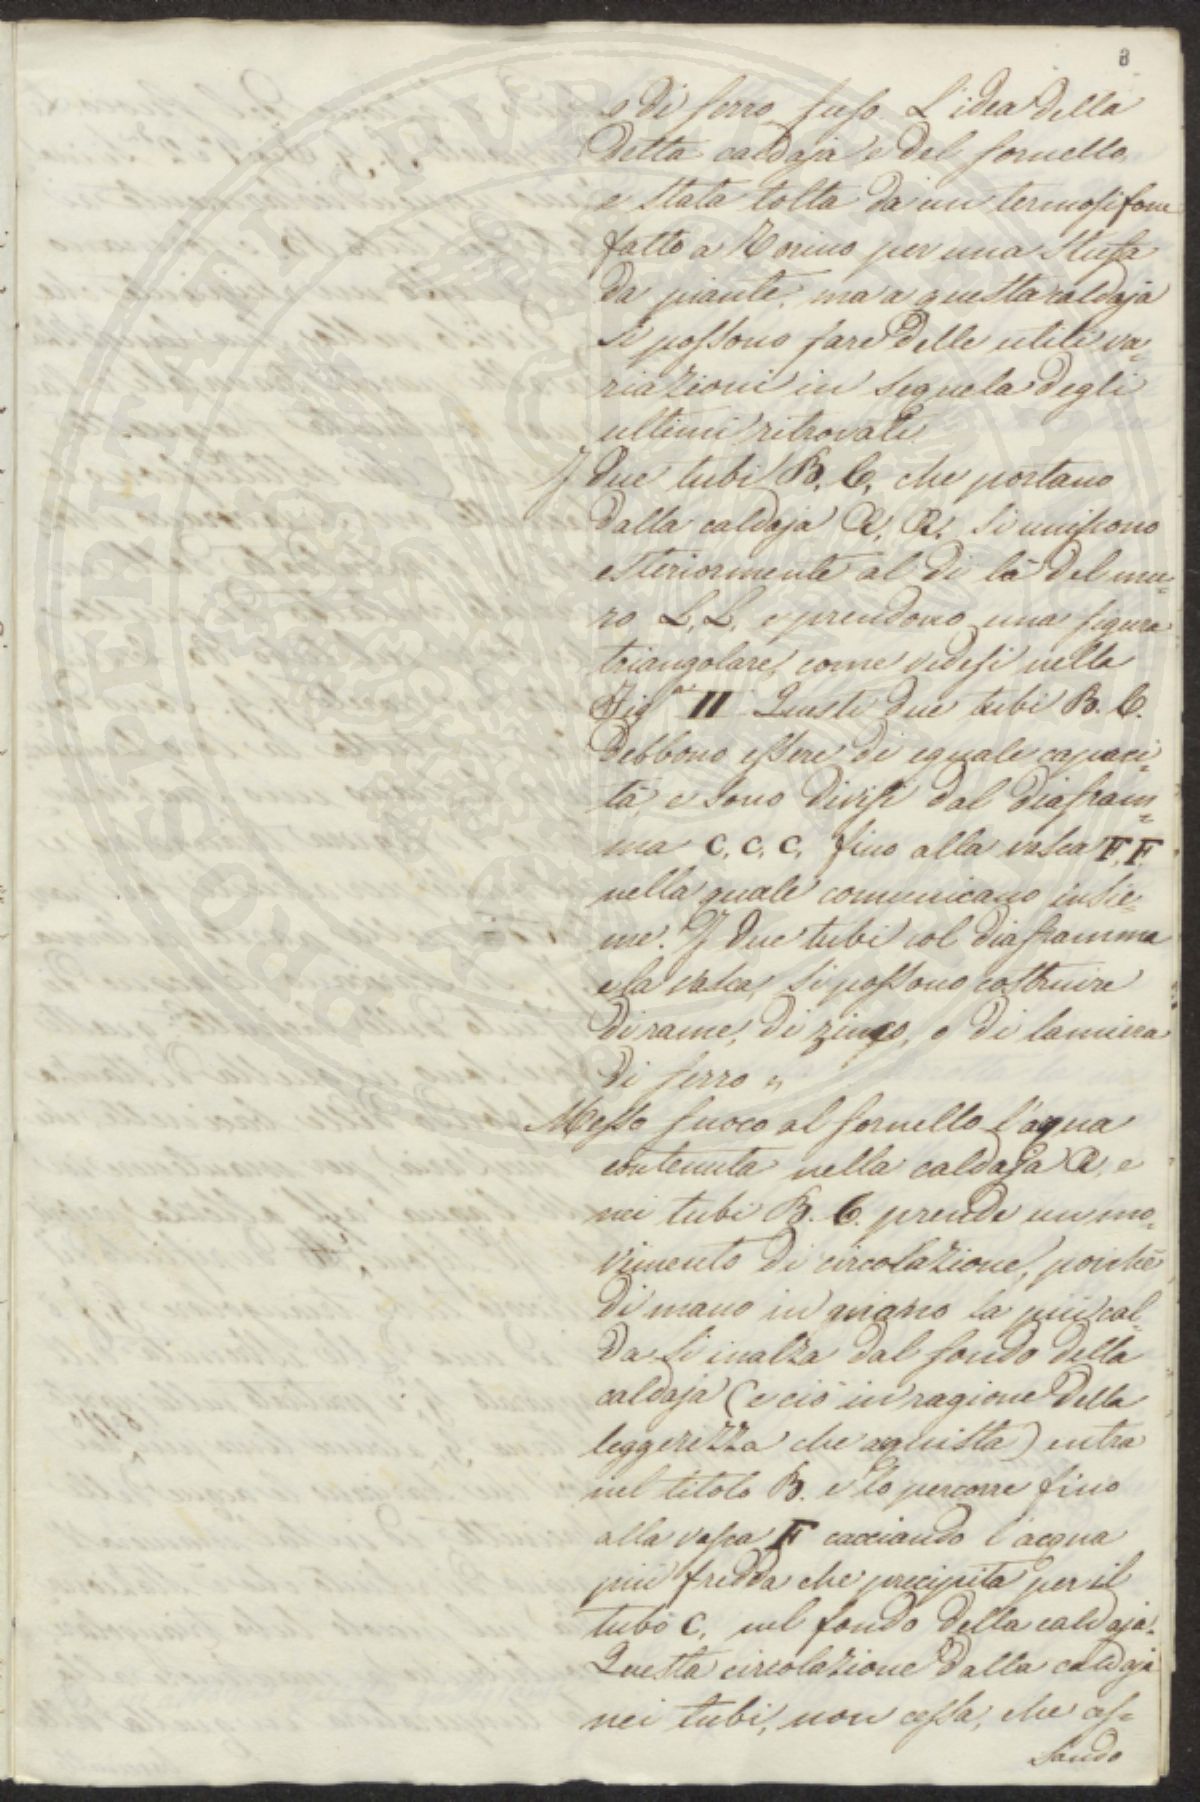 8
o di ferro fuso. L'idea della
detta caldaja e del fornello,
e stata tolta da un termosifone
fatto a Torino per una stufa
da piante, ma a questa caldaja
si possono fare delle utili va=
riazioni in sequela degli
ultimi ritrovati.
I due tubi B. C. che portano
dalla caldaja A. A. si uniscono
esteriormente al di là del mu=
ro L. L. e prendono una figura
triangolare, come vedesi nella
Fig.ra II Questi due tubi B. C.
debbono essere di eguale capaci=
tà, e sono divisi dal diafram=
ma C. C. C. fino alla vasca F. F.
nella quale comunicano insie=
me. I due tubi col diaframma
e la vasca, si possono costruire
di rame, di zinco, o di lamiera
di ferro =
Messo fuoco al fornello l'aqua
contenuta nella caldaja A, e
nei tubi B. C. prende un mo=
vimento di circolazione, poichè
di mano in mano la più cal=
da si inalza dal fondo della
caldaja (e ciò in ragione della
leggerezza che aquista) entra
nel titolo B. e lo percorre fino
alla vasca F cacciando l'acqua
più fredda che precipita per il
tubo C, nel fondo della caldaja.
Questa circolazione dalla caldaja
nei tubi, non cessa, che ces=
sando
POSPERITATI PVBLICAE